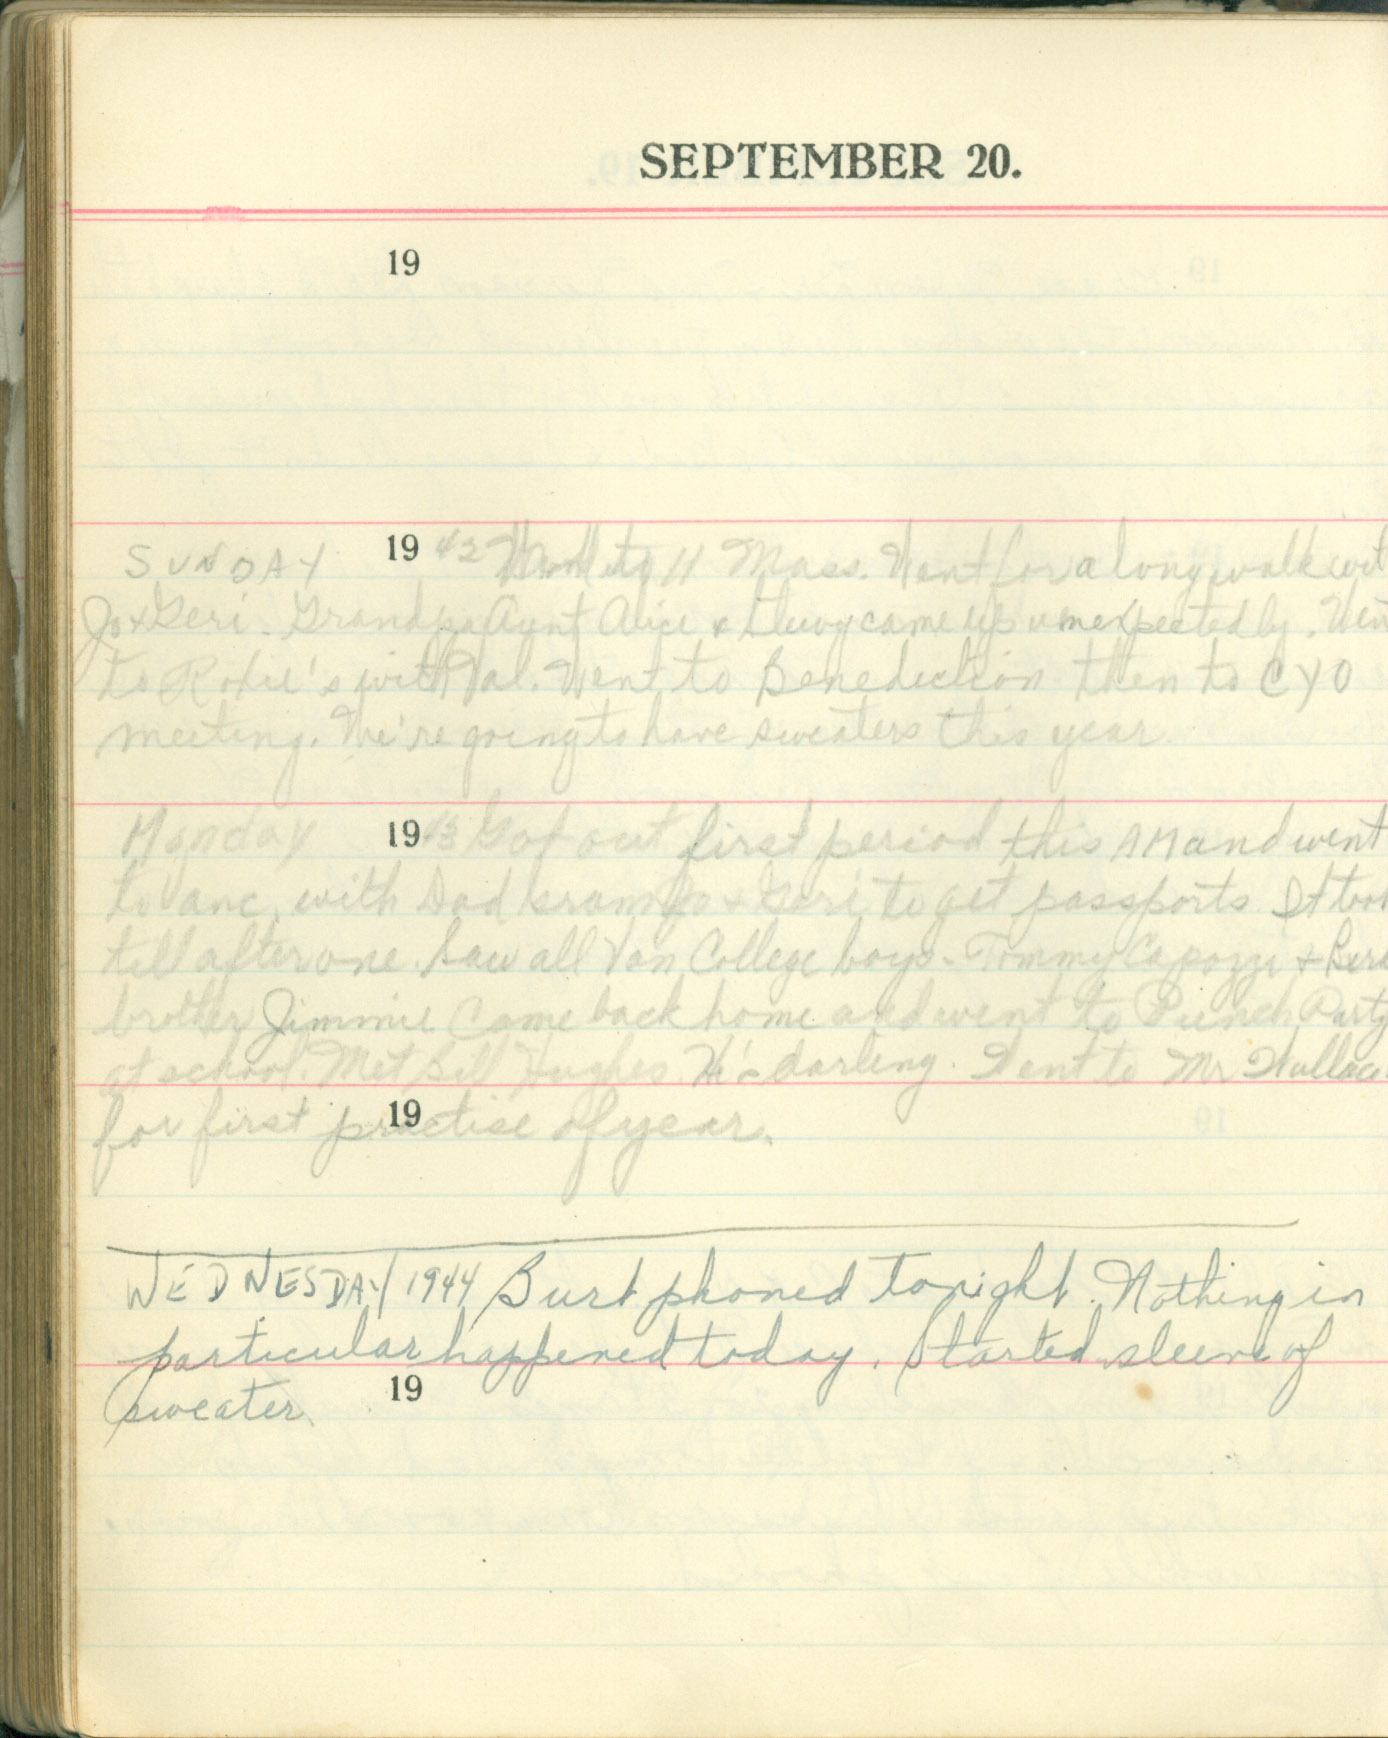 SEPTEMBER 20.
19
SUNDAY 1942 Went to 11 Mass. Went for a long walk wit
Jo & Geri. Grandpa Aunt Alice & came up unexpectedly. Wen
to Rodie's with Val. Went to Benediction then to CYO
meeting. We're going to have sweaters this year
Monday 1943 Got out first period this AM and went
to Vanc. with Dad Gramp Jo & Geri to get passports It took
till after one. Saw all Van College boys - Tommy Capozzi &
brother Jimmie. Came back home and went to Punch Party
at school. Met Bill Hughes. He's darling. Went to Mr Wallace
19
for first practise of year.
WEDNESDAY 1944 Burt phoned tonight. Nothing in
particular happened today. Started sleeve of
19
sweater.